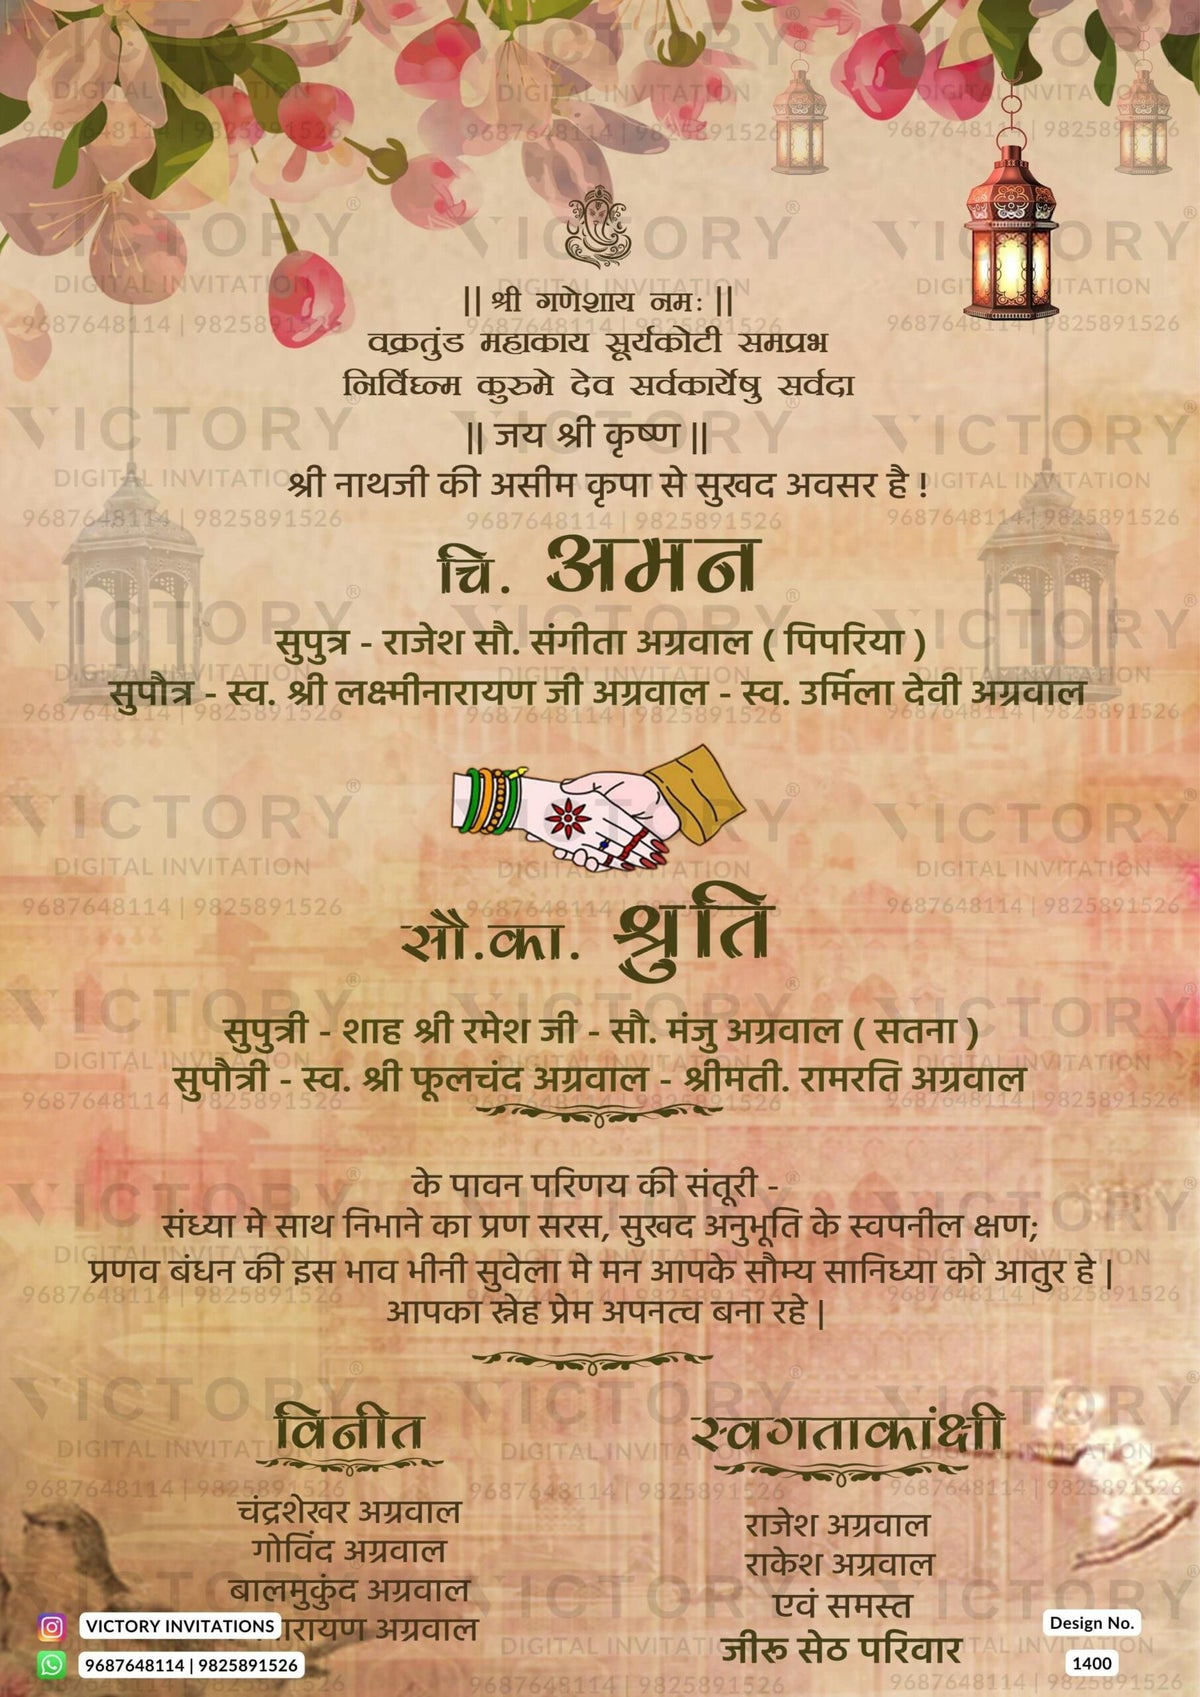 || श्री गणेशाय नमः ||
वक्रतुंड महाकाय सूर्यकोटी समप्रभ
निर्विघ्न्म कुरुमे देव सर्वकार्येषु सर्वदा
|| जय श्री कृष्ण ||
श्री नाथजी की असीम कृपा से सुखद अवसर है !
चि. अमन
सुपुत्र - राजेश सौ. संगीता अग्रवाल ( पिपरिया )
सुपौत्र - स्व. श्री लक्ष्मीनारायण जी अग्रवाल - स्व. उर्मिला देवी अग्रवाल
सौ.का. श्रुति
सुपुत्री - शाह श्री रमेश जी - सौ. मंजु अग्रवाल ( सतना )
सुपौत्री - स्व. श्री फूलचंद अग्रवाल - श्रीमती. रामरति अग्रवाल
के पावन परिणय की संतूरी -
संध्या मे साथ निभाने का प्रण सरस, सुखद अनुभूति के स्वपनील क्षण;
प्रणव बंधन की इस भाव भीनी सुवेला मे मन आपके सौम्य सानिध्या को आतुर हे |
आपका स्नेह प्रेम अपनत्व बना रहे |
विनीत
चंद्रशेखर अग्रवाल
गोविंद अग्रवाल
बालमुकुंद अग्रवाल
अग्रवाल
स्वगताकांक्षी
राजेश अग्रवाल
राकेश अग्रवाल
एवं समस्त
जीरू सेठ परिवार
VICTORY INVITATIONS
9687648114 | 9825891526
Design No.
1400
VICTORY®
DIGITAL INVITATION
9687648114 | 9825891526